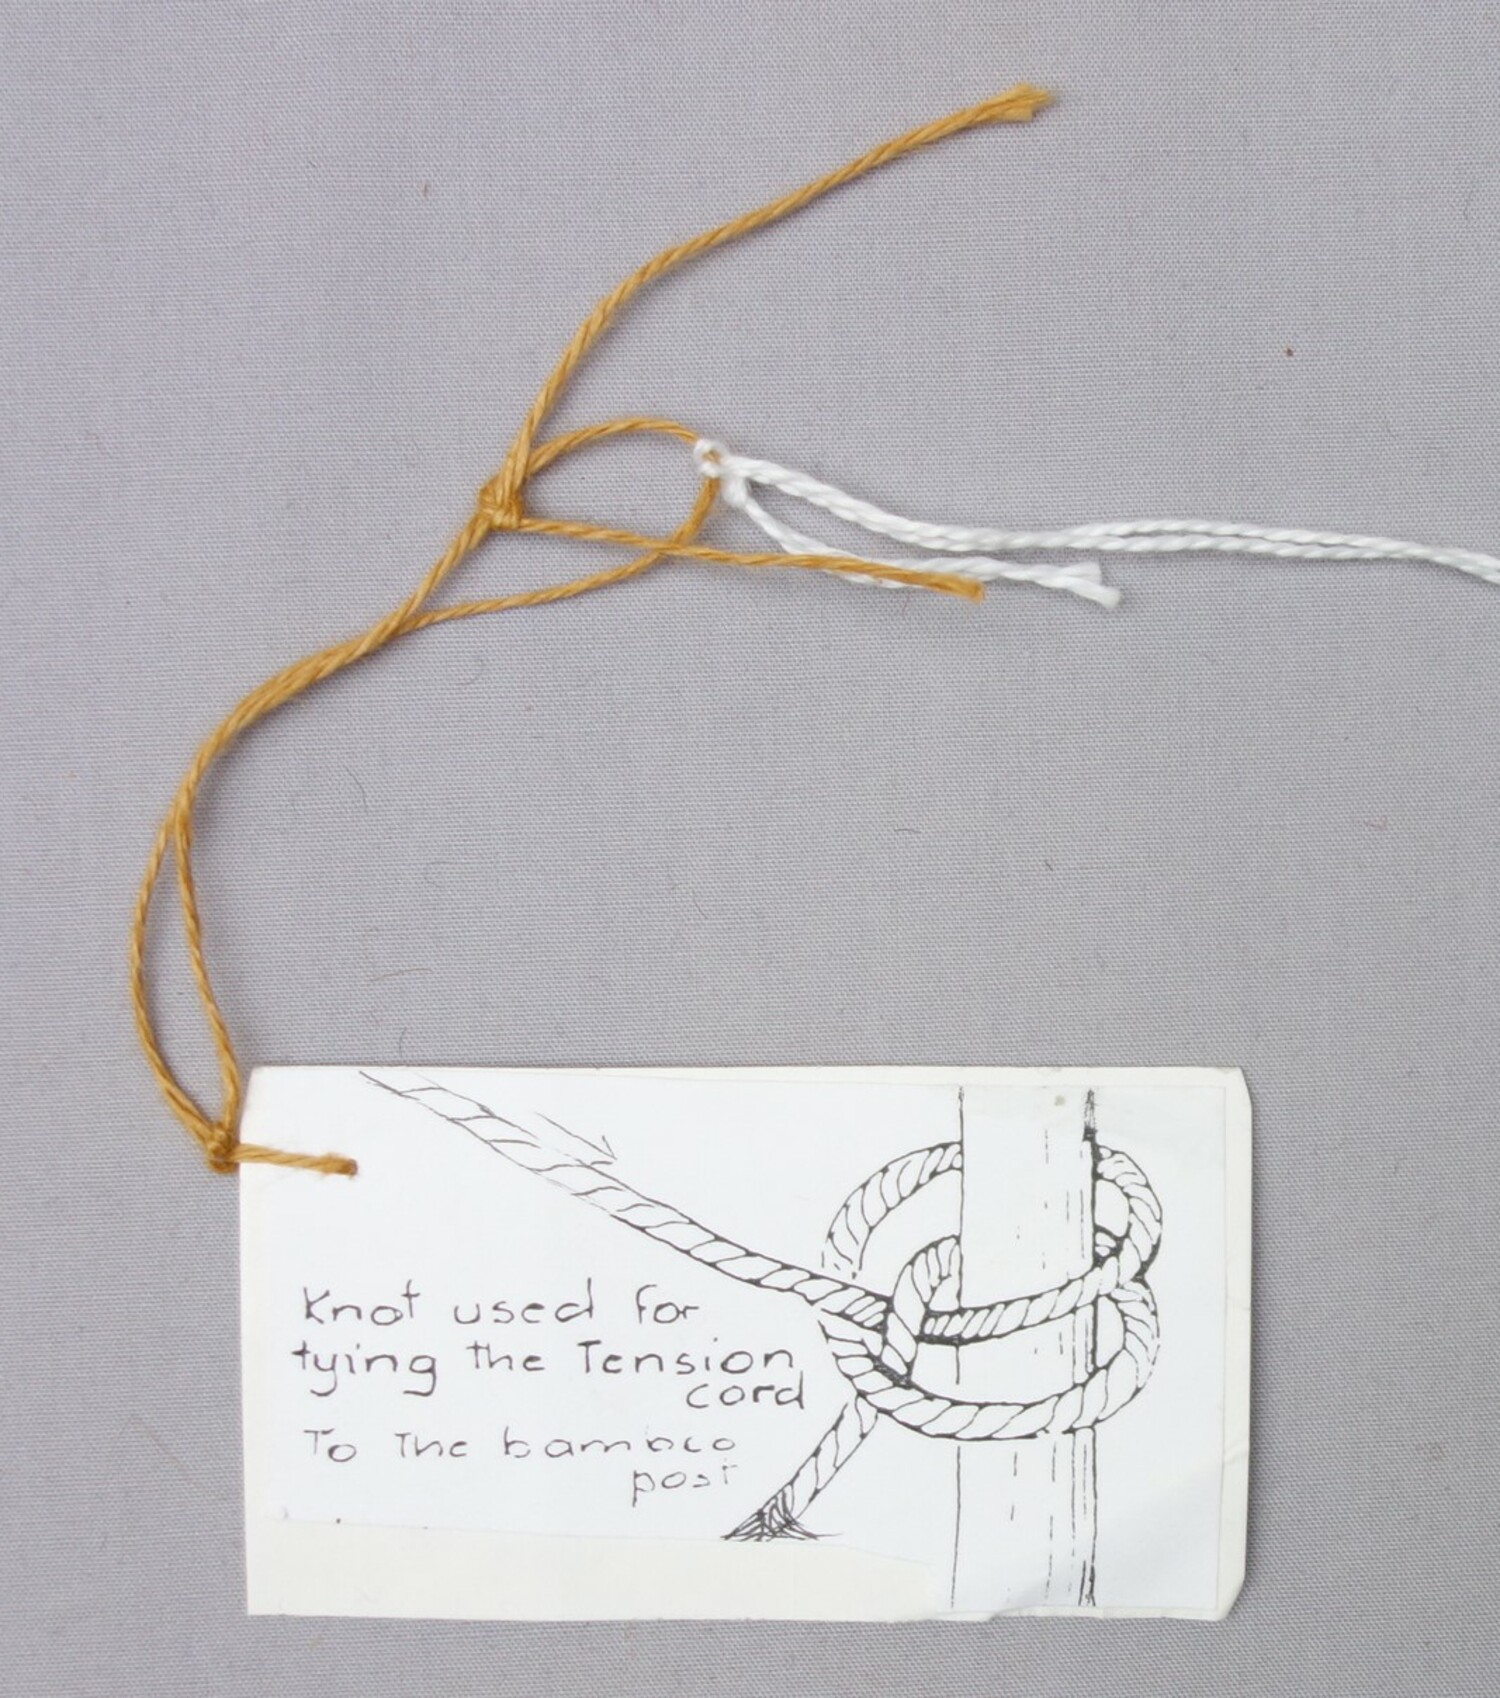 Knot used for
tying the Tension
cord
To The bamboo
post